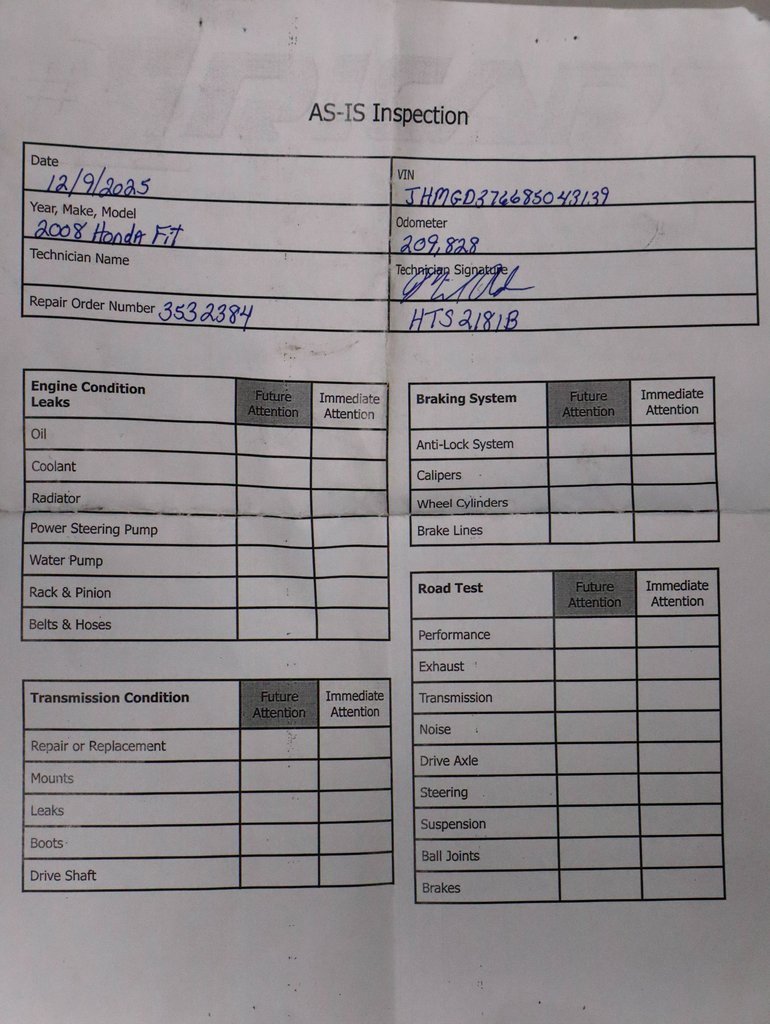 AS-IS Inspection
Date
12/9/2025
VIN
JHMGD37668S043139
Year, Make, Model
2008 Honda Fit
Odometer
209,828
Technician Name
Technician Signature
Repair Order Number 3532384
HTS2181B
Engine Condition
Leaks
Future
Attention
Immediate
Attention
Oil
Coolant
Radiator
Power Steering Pump
Water Pump
Rack & Pinion
Belts & Hoses
Transmission Condition
Future
Attention
Immediate
Attention
Repair or Replacement
Mounts
Leaks
Boots
Drive Shaft
Braking System
Future
Attention
Immediate
Attention
Anti-Lock System
Calipers
Wheel Cylinders
Brake Lines
Road Test
Future
Attention
Immediate
Attention
Performance
Exhaust
Transmission
Noise
Drive Axle
Steering
Suspension
Ball Joints
Brakes